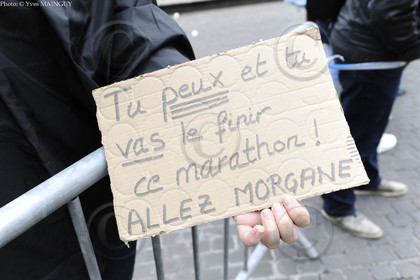 Photo: © Yves MAINGUY
Tu peux et tu
vas le finir
ce marathon !
ALLEZ MORGANE